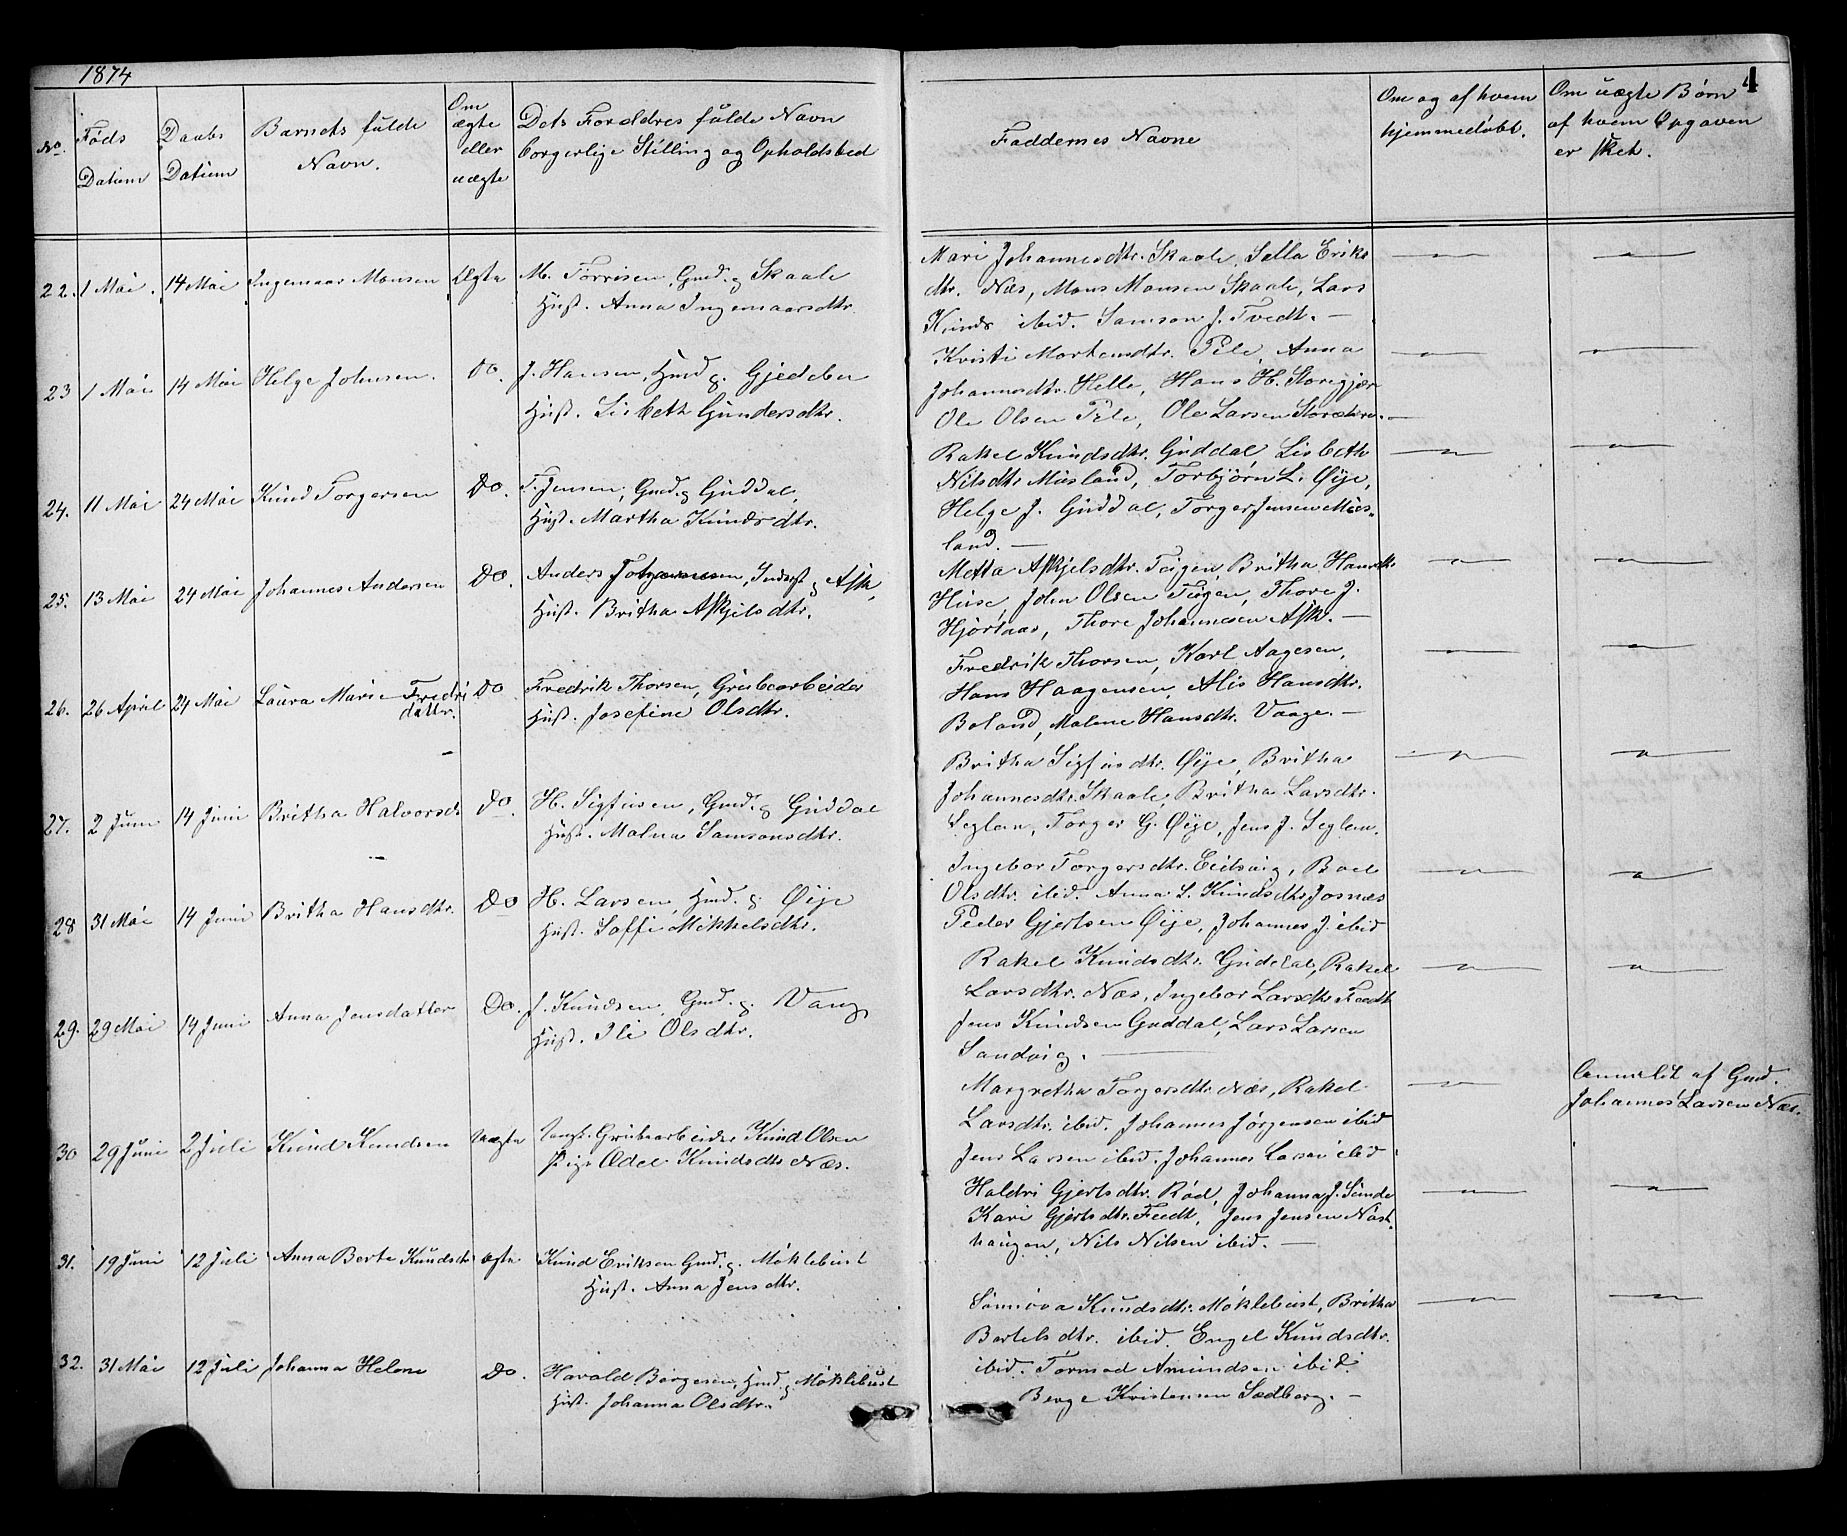 1874
4
No.
Føds
Datum
Daabs
Datum
Barnets fulde
Navn.
Om
ægte
eller
uægte
Dets Forældres fulde Navn
borgerlige Stilling og Opholdsted
Faddernes Navne
Om og af hvem
hjemmedøbt.
Om uægte Børn
af hvem Opgaven
er sket.
22. 1 Mai. 14 Mai Ingemaar Monsen Ægte M. Torrisen, Gmd. g Skaale
Hust. Anna Ingemaarsdtr.
Mari Johannesdtr. Skaale, Sella Eriks
dtr. Næs, Mons Monsen Skaale, Lars
Knuds ibid. Samson J. Tvedt. —
23 1 Mai 14 Mai Helge Johnsen. Do. J. Hansen, Hmd g. Gjedebu
Hust. Lisbeth Gundersdtr.
Kristi Mortensdtr. Pile, Anna
Johannesdtr. Helle, Hans H. Storegjær
Ole Olsen Pile, Ole Larsen
24. 11 Mai 24 Mai Knud Torgersen Do. T. Jensen, Gmd. g Guddal,
Hust. Martha Knudsdtr.
Rakel Knudsdtr. Guddal, Lisbeth
Nilsdtr. Musland, Torbjørn L. Øye,
Helge J. Guddal, Torger Jensen Mus-
land. —
25. 13 Mai 24 Mai Johannes Andersen Do. Anders Johannesen, Inderst g Ask,
Hust. Britha Askjelsdtr.
Metta Askjelsdtr. Teigen, Britha Hansdtr
Huse, John Olsen Teigen, Thore J.
Hjortaas, Thore Johannesen Ask. —
26. 26 April 24 Mai Laura Marie Fredri
dattr. Do Fredrik Thorsen, Grubearbeider
Hust. Josefine Olsdtr.
Fredrik Thorsen, Karl Aagesen,
Hans Haagensen, Alis Hansdtr.
Boland, Malene Hansdtr. Vaage. —
27. 2 Juni 14 Juni Britha Halvorsd. Do. H. Sigfusen, Gmd. g Guddal
Hust. Malna Samsonsdtr.
Britha Sigfusdtr. Øye, Britha
Johannesdtr. Skaale, Britha Larsdtr.
Seglem, Torger G. Øye, Jens J. Seglem.
28 31 Mai 14 Juni Britha Hansdtr. Do H. Larsen, Hmd. g. Øye
Hust. Soffi Mikkelsdtr.
Ingebor Torgersdtr. Eidsvig, Boel
Olsdtr. ibid. Anna L. Knudsdtr. Josnæs
Peder Gjertsen Øye, Johannes J. ibid
29. 29 Mai 14 Juni Anna Jensdatter Do. J. Knudsen, Gmd. g. Vang
Hust. Ili Olsdtr.
Rakel Knudsdtr. Guddal, Rakel
Larsdtr. Næs, Ingebor Larsdtr. Feedt
Jens Knudsen Guddal, Lars Larsen
Sandvig. —
30 29 Juni 2 Juli Knud Knudsen Uægte Ungk. Grubearbeider Knud Olsen
Pige Ædel Knudsdtr. Næs.
Margretha Torgersdtr. Næs, Rakel
Larsdtr. ibid. Johannes Jørgensen ibid
Jens Larsen ibid. Johannes Larsen ibid
Anmeldt af Gmd.
Johannes Larsen Næs.
31. 19 Juni 12 Juli Anna Berte Knudsdtr Ægte Knud Eriksen Gmd. g. Møklebust
Hust. Anna Jensdtr.
Haldri Gjertsdtr. Rød, Johanna J. Sunde
Kari Gjertsdtr. Feedt, Jens Jensen Nøst-
haugen, Nils Nilsen ibid. —
32. 31 Mai 12 Juli Johanna Helene Do. Harald Børgesen, Hmd. g Møklebust
Hust. Johanna Olsdtr.
Sønnøva Knudsdtr. Møklebust, Britha
Bertelsdtr. ibid. Engel Knudsdtr.
ibid. Tormod Amundsen ibid.
Berge Kristensen Sædberg. —